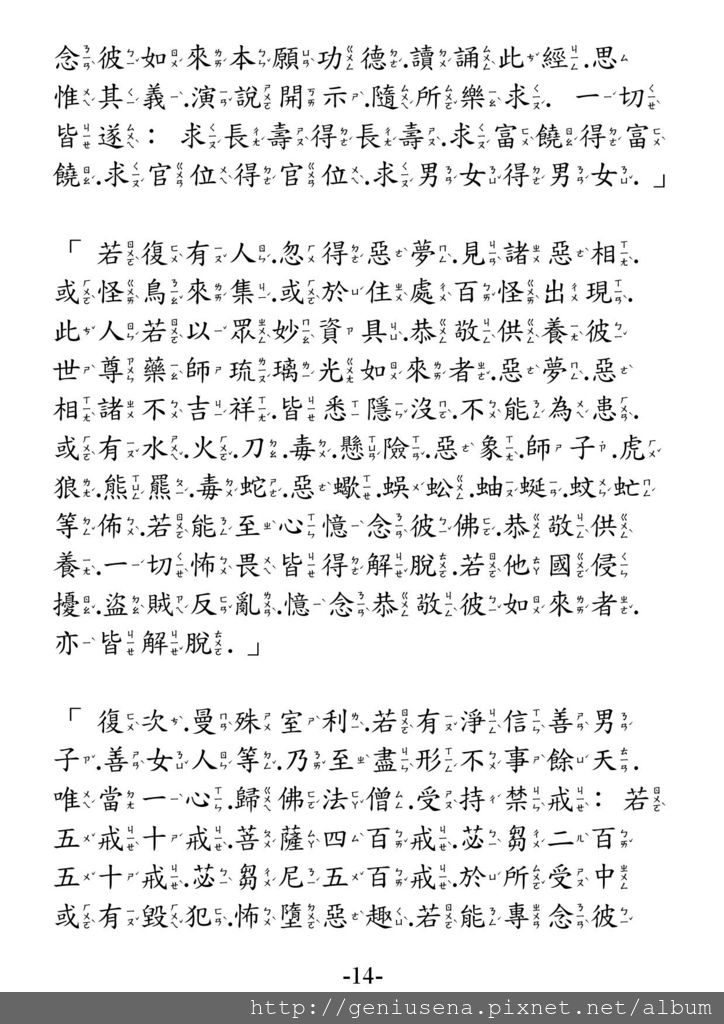 念彼如來本願功德.讀誦此經.思
惟其義.演說開示.隨所樂求. 一切
皆遂： 求長壽得長壽.求富饒得富
饒.求官位得官位.求男女得男女.」
「 若復有人.忽得惡夢.見諸惡相.
或怪鳥來集.或於住處百怪出現.
此人若以眾妙資具.恭敬供養彼
世尊藥師琉璃光如來者.惡夢.惡
相諸不吉祥.皆悉隱沒.不能為患.
或有水.火.刀.毒.懸險.惡象.師子.虎
狼.熊羆.毒蛇.惡蠍.蜈蚣.蚰蜒.蚊虻
等佈.若能至心憶念彼佛.恭敬供
養.一切怖畏皆得解脫.若他國侵
擾.盜賊反亂.憶念恭敬彼如來者.
亦皆解脫.」
「 復次.曼殊室利.若有淨信善男
子.善女人等.乃至盡形不事餘天.
唯當一心.歸佛法僧.受持禁戒： 若
五戒十戒.菩薩四百戒.苾芻二百
五十戒.苾芻尼五百戒.於所受中
或有毀犯.怖墮惡趣.若能專念彼
-14-
http://geniusena.pixnet.net/album